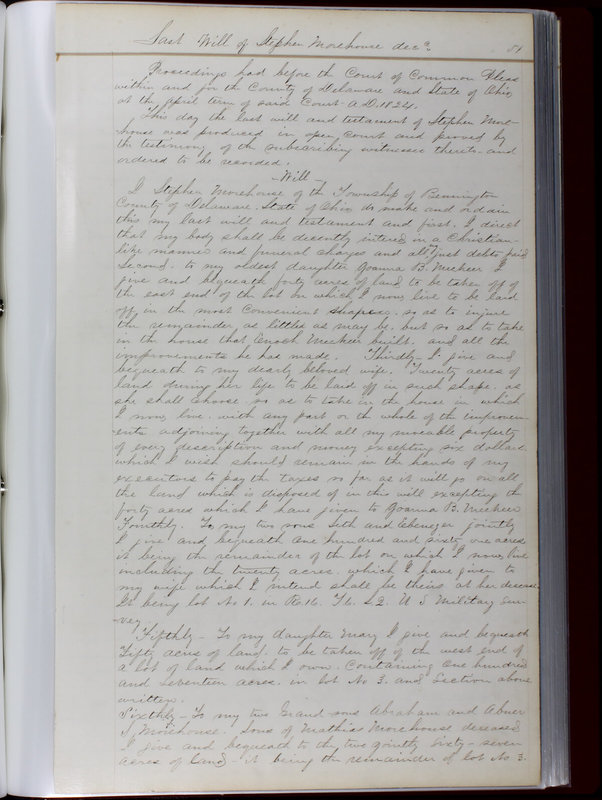 Last Will of Stephen Morehouse decd.
Proceedings had before the Court of Common Pleas
within and for the County of Delaware and State of Ohio,
at the April term of said Court A.D. 1824.
This day the last will and testament of Stephen More-
house was produced in open Court and proved by
the testimony of the subscribing witnesses thereto and
ordered to be recorded.
- Will -
I Stephen Morehouse of the Township of Bennington
County of Delaware, State of Ohio do make and ordain
this my last will and testament and first, I direct
that my body shall be decently intered in a Christian-
like manner and funeral charges and all just debts paid
Second. to my oldest daughter Joanna B. Meeker I
give and bequeath forty acres of land to be taken off of
the east end of the lot on which I now live to be laid
off in the most convenient shape so as to injure
the remainder as little as may be, but so as to take
in the house that Enoch Meeker built, and all the
improvements he has made. Thirdly - I give and
bequeath to my dearly beloved wife, Twenty acres of
land during her life to be laid off in such shape, as
she shall choose, so as to take in the house in which
I now live, with any part or the whole of the improvem-
ents adjoining together with all my movable property
of every description and money excepting six dollars
which I wish should remain in the hands of my
executors to pay the taxes so far as it will go on all
the land which is disposed of in this will excepting the
forty acres which I have given to Joanna B. Meeker
Fourthly. To my two sons Seth and Ebenezer jointly
I give and bequeath one hundred and sixty one acres
it being the remainder of the lot on which I now live
including the twenty acres, which I have given to
my wife which I intend shall be theirs at her decease.
It being lot No 1. in R.16. T.6. S2. U S Military Sur-
vey.
Fifthly - To my daughter Mary I give and bequeath
Fifty acres of land, to be taken off of the west end of
a lot of land which I own. Containing One hundred
and seventeen acres, in lot No 3. and Section above
written.
Sixthly - To my two Grand sons Abraham and Abner
Morehouse. Sons of Mathias Morehouse deceased
I give and bequeath to the two jointly Sixty-seven
acres of land - it being the remainder of lot No 3.